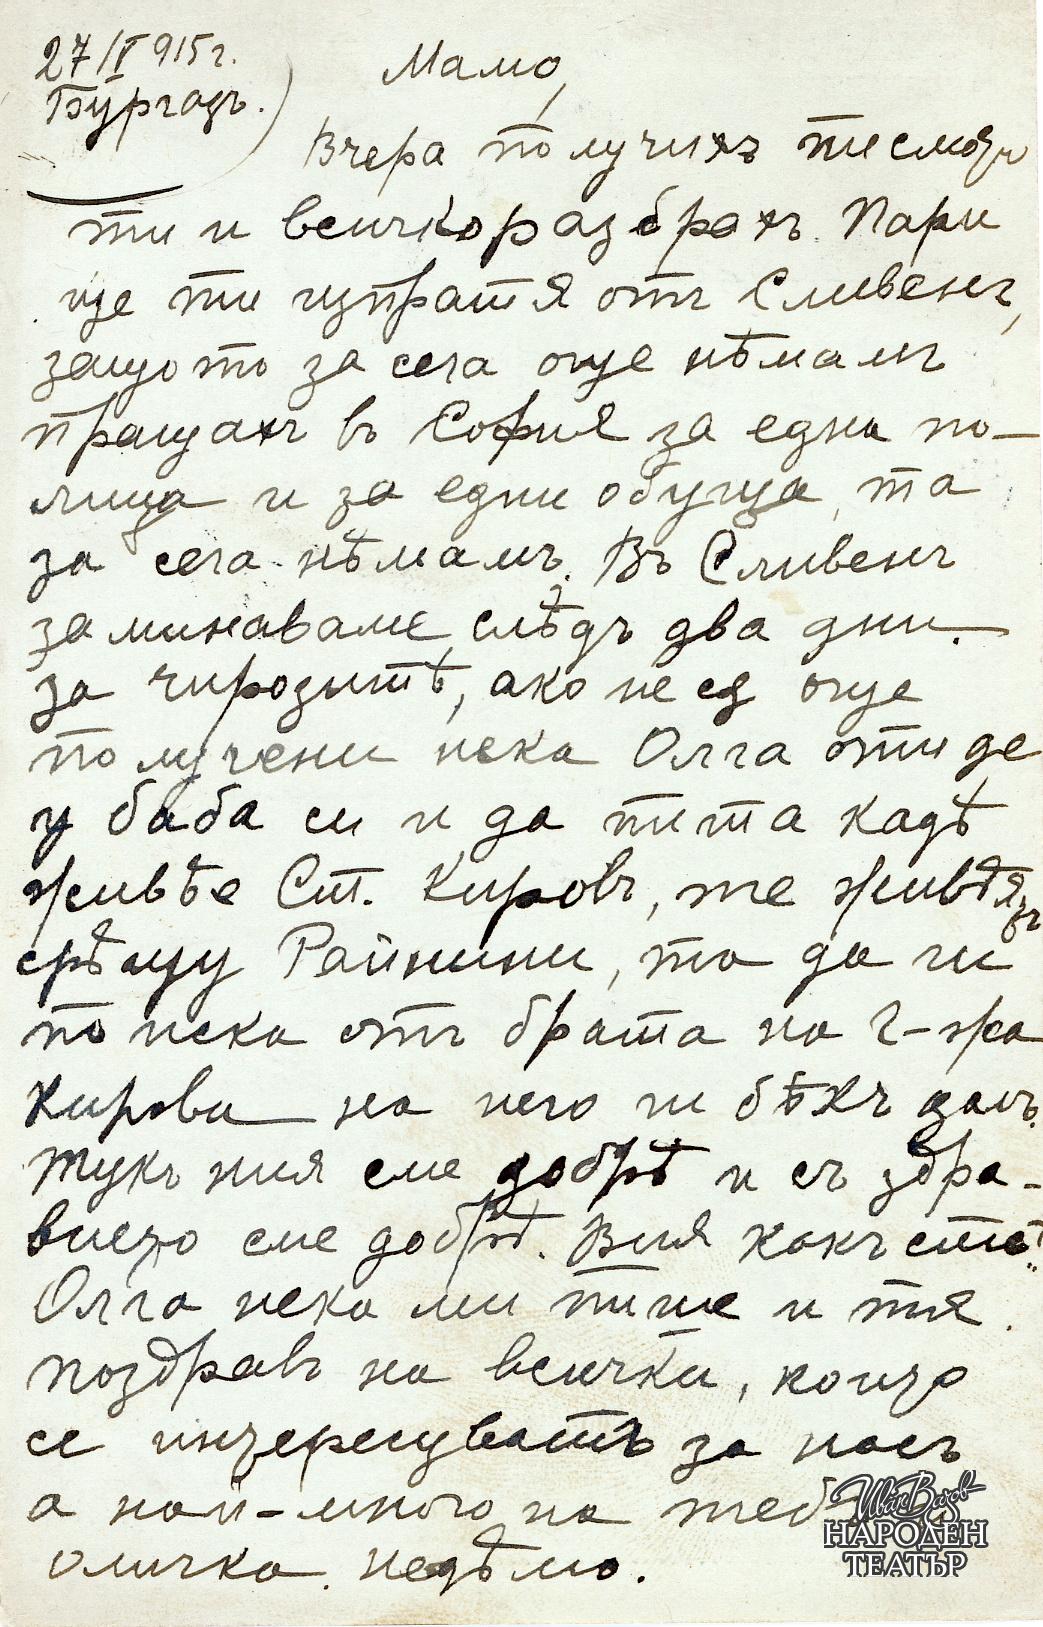 27/V 915 г.
Бургазъ.
Мамо,
Вчера получихъ писмото
ти и всичко разбрахъ. Пари
ще ти изпратя отъ Сливенъ,
защото за сега още нѣмамъ
пращахъ въ София за една по-
лица и за едни обуща, та
за сега нѣмамъ. Въ Сливенъ
заминаваме слѣдъ два дни.
за чирозитѣ, ако не сѫ още
получени нека Олга отиде
у баба си и да пита кадѣ
живѣе Ст. Кировъ, те живѣятъ
срѣщу Райнини, та да ги
поиска отъ брата на г-жа
Кирова на него ги бѣхъ далъ.
Тукъ ния сме добрѣ и съ здра-
вието сме добрѣ. Вия какъ сте?
Олга нека ми пише и тя.
поздравъ на всички, които
се интересуватъ за насъ
а най-много на тебѣ и
Оличка. Недѣлю.
Иван Вазов
НАРОДЕН
ТЕАТЪР